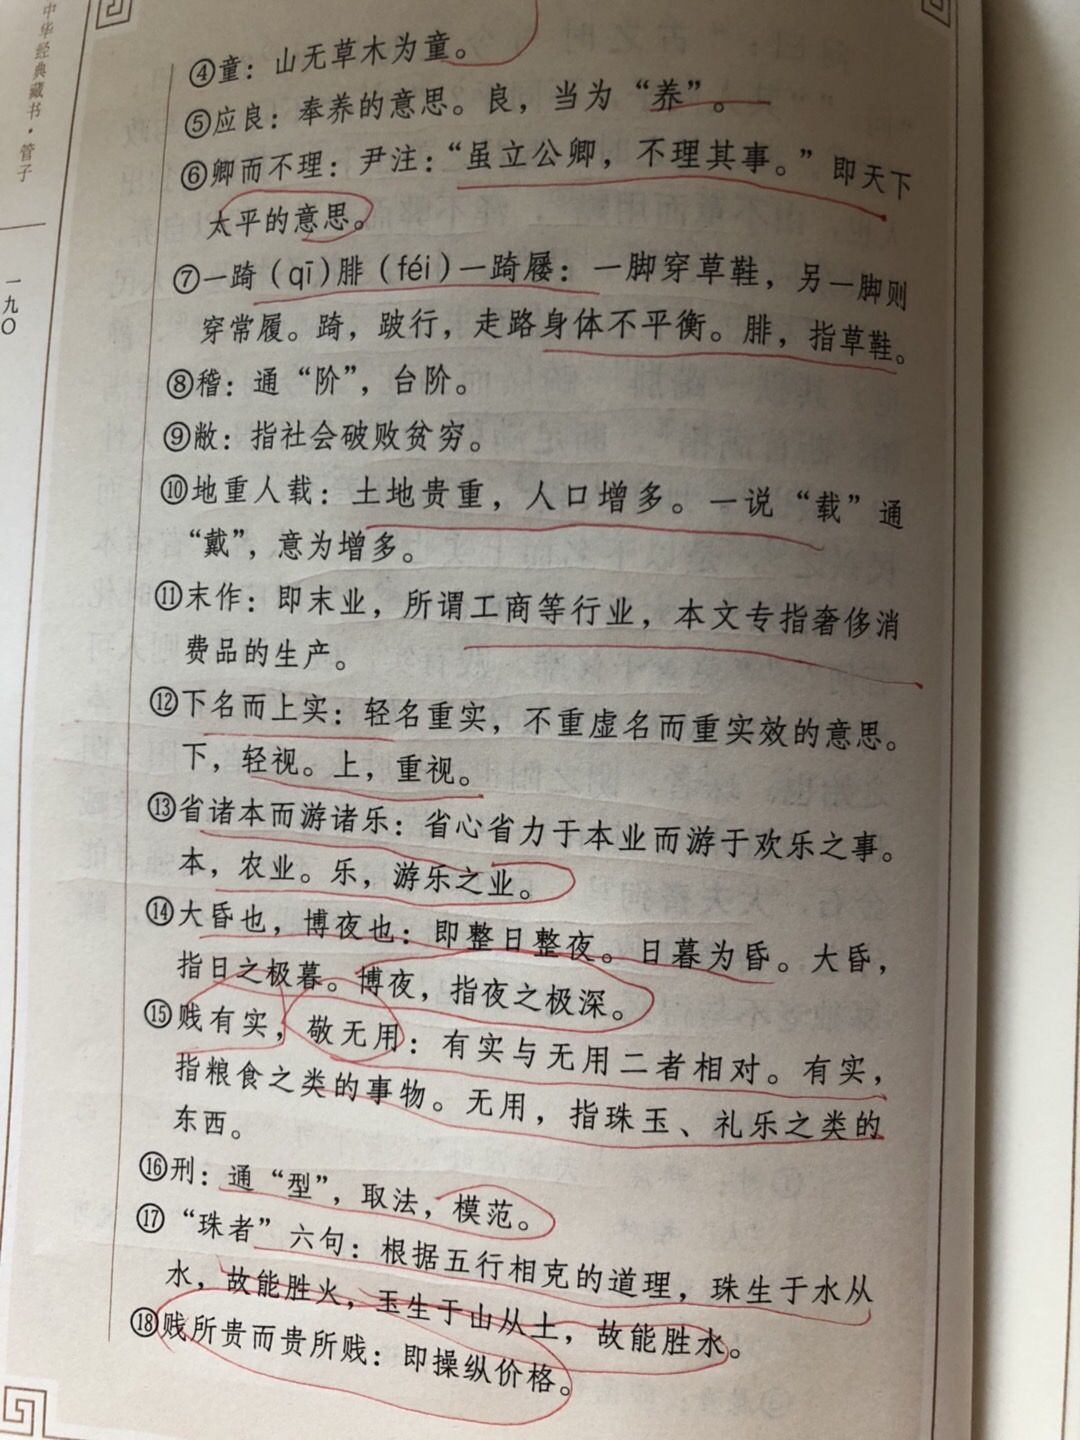 中华经典藏书·管子
一九〇
④童：山无草木为童。
⑤应良：奉养的意思。良，当为“养”。
⑥卿而不理：尹注：“虽立公卿，不理其事。”即天下
太平的意思。
⑦一踦（qī）腓（féi）一踦屦：一脚穿草鞋，另一脚则
穿常履。踦，跛行，走路身体不平衡。腓，指草鞋。
⑧稽：通“阶”，台阶。
⑨敝：指社会破败贫穷。
⑩地重人载：土地贵重，人口增多。一说“载”通
“戴”，意为增多。
⑪末作：即末业，所谓工商等行业，本文专指奢侈消
费品的生产。
⑫下名而上实：轻名重实，不重虚名而重实效的意思。
下，轻视。上，重视。
⑬省诸本而游诸乐：省心省力于本业而游于欢乐之事。
本，农业。乐，游乐之业。
⑭大昏也，博夜也：即整日整夜。日暮为昏。大昏，
指日之极暮。博夜，指夜之极深。
⑮贱有实，敬无用：有实与无用二者相对。有实，
指粮食之类的事物。无用，指珠玉、礼乐之类的
东西。
⑯刑：通“型”，取法，模范。
⑰“珠者”六句：根据五行相克的道理，珠生于水从
水，故能胜火，玉生于山从土，故能胜水。
⑱贱所贵而贵所贱：即操纵价格。